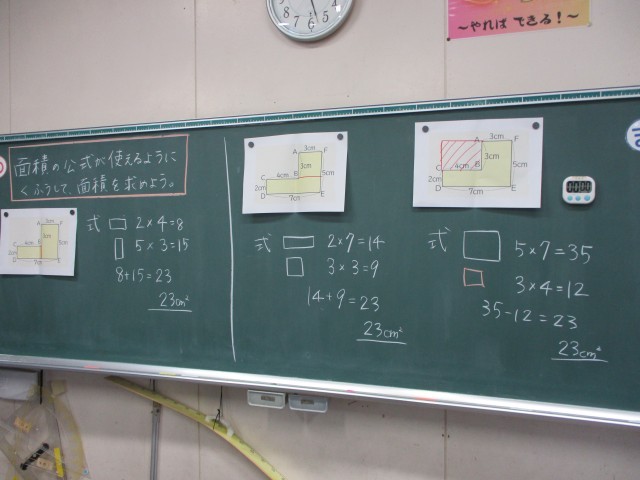 ～やれば できる！～
面積の公式が使えるように
くふうして、面積を求めよう。
式 2×4=8
5×3=15
8+15=23
23cm²
A 3cm F
3cm
C 4cm B
2cm
5cm
D 7cm E
式 2×7=14
3×3=9
14+9=23
23cm²
A 3cm F
3cm
C 4cm B
2cm
5cm
D 7cm E
式 5×7=35
3×4=12
35-12=23
23cm²